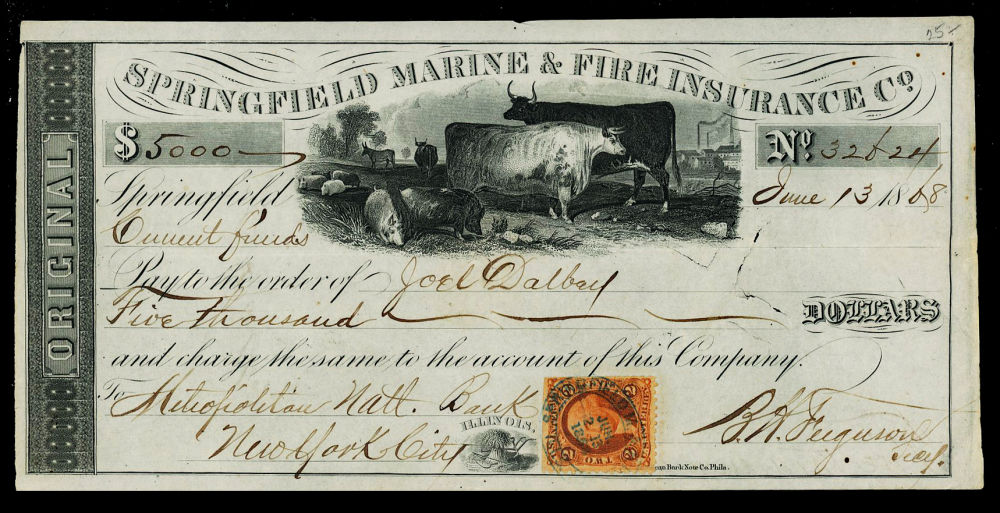 25
SPRINGFIELD MARINE & FIRE INSURANCE Co.
ORIGINAL
$5000
No. 32624
Springfield June 13 1868
Current funds
Pay to the order of Joel Dalbey
Five thousand DOLLARS
and charge the same to the account of this Company.
To Metropolitan Natl. Bank
New York City
ILLINOIS.
TWO
B. H. Ferguson
Bank Note Co. Phila.